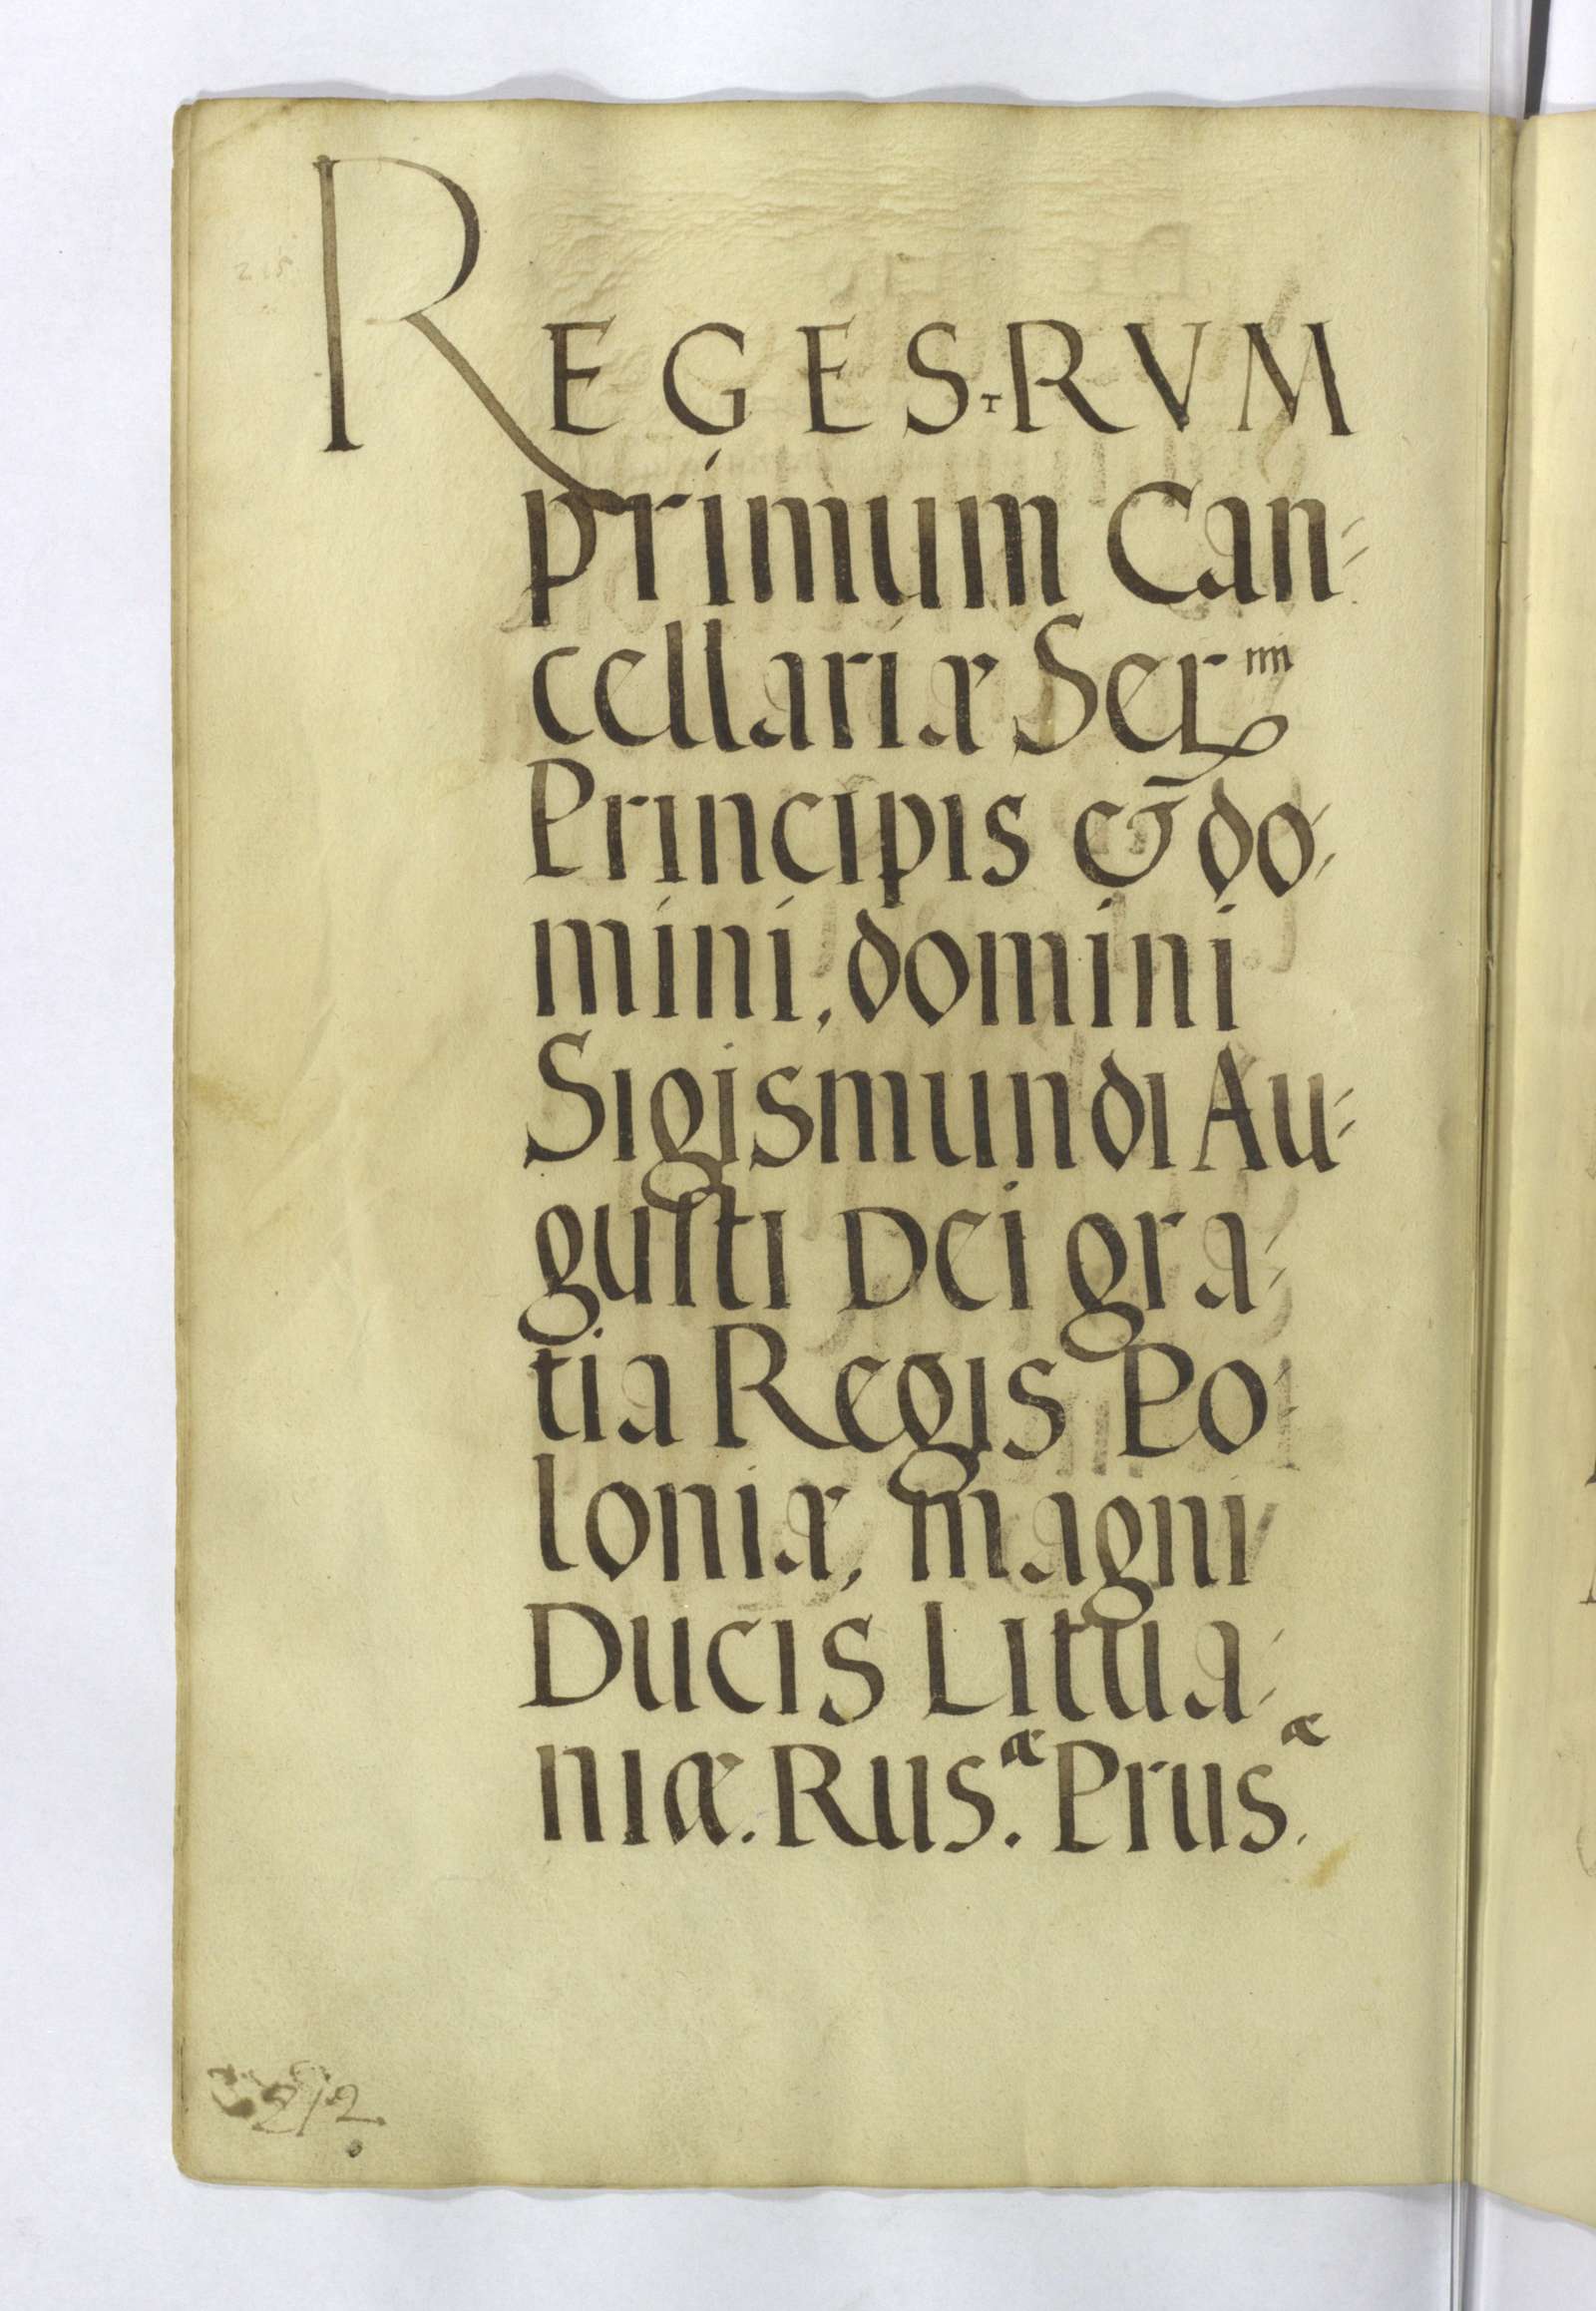 REGESTRVM
primum Can-
cellariæ Ser^mi
Principis & do-
mini, domini
Sigismundi Au-
gusti Dei gra-
tia Regis Po-
loniæ, magni
Ducis Litua-
niæ. Rus.^æ Prus.^æ
212